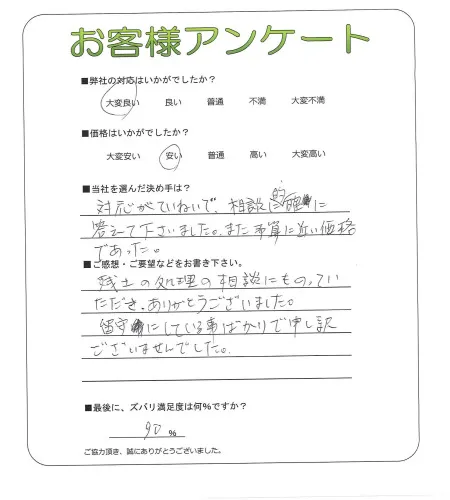 お客様アンケート
■弊社の対応はいかがでしたか？
大変良い 良い 普通 不満 大変不満
■価格はいかがでしたか？
大変安い 安い 普通 高い 大変高い
■当社を選んだ決め手は？
対応がていねいで、相談に的確に
答えて下さいました。また予算に近い価格
であった。
■ご感想・ご要望などをお書き下さい。
残土の処理の相談にものってい
ただき、ありがとうございました。
留守にしている事ばかりで申し訳
ございませんでした。
■最後に、ズバリ満足度は何%ですか？
90 %
ご協力頂き、誠にありがとうございました。